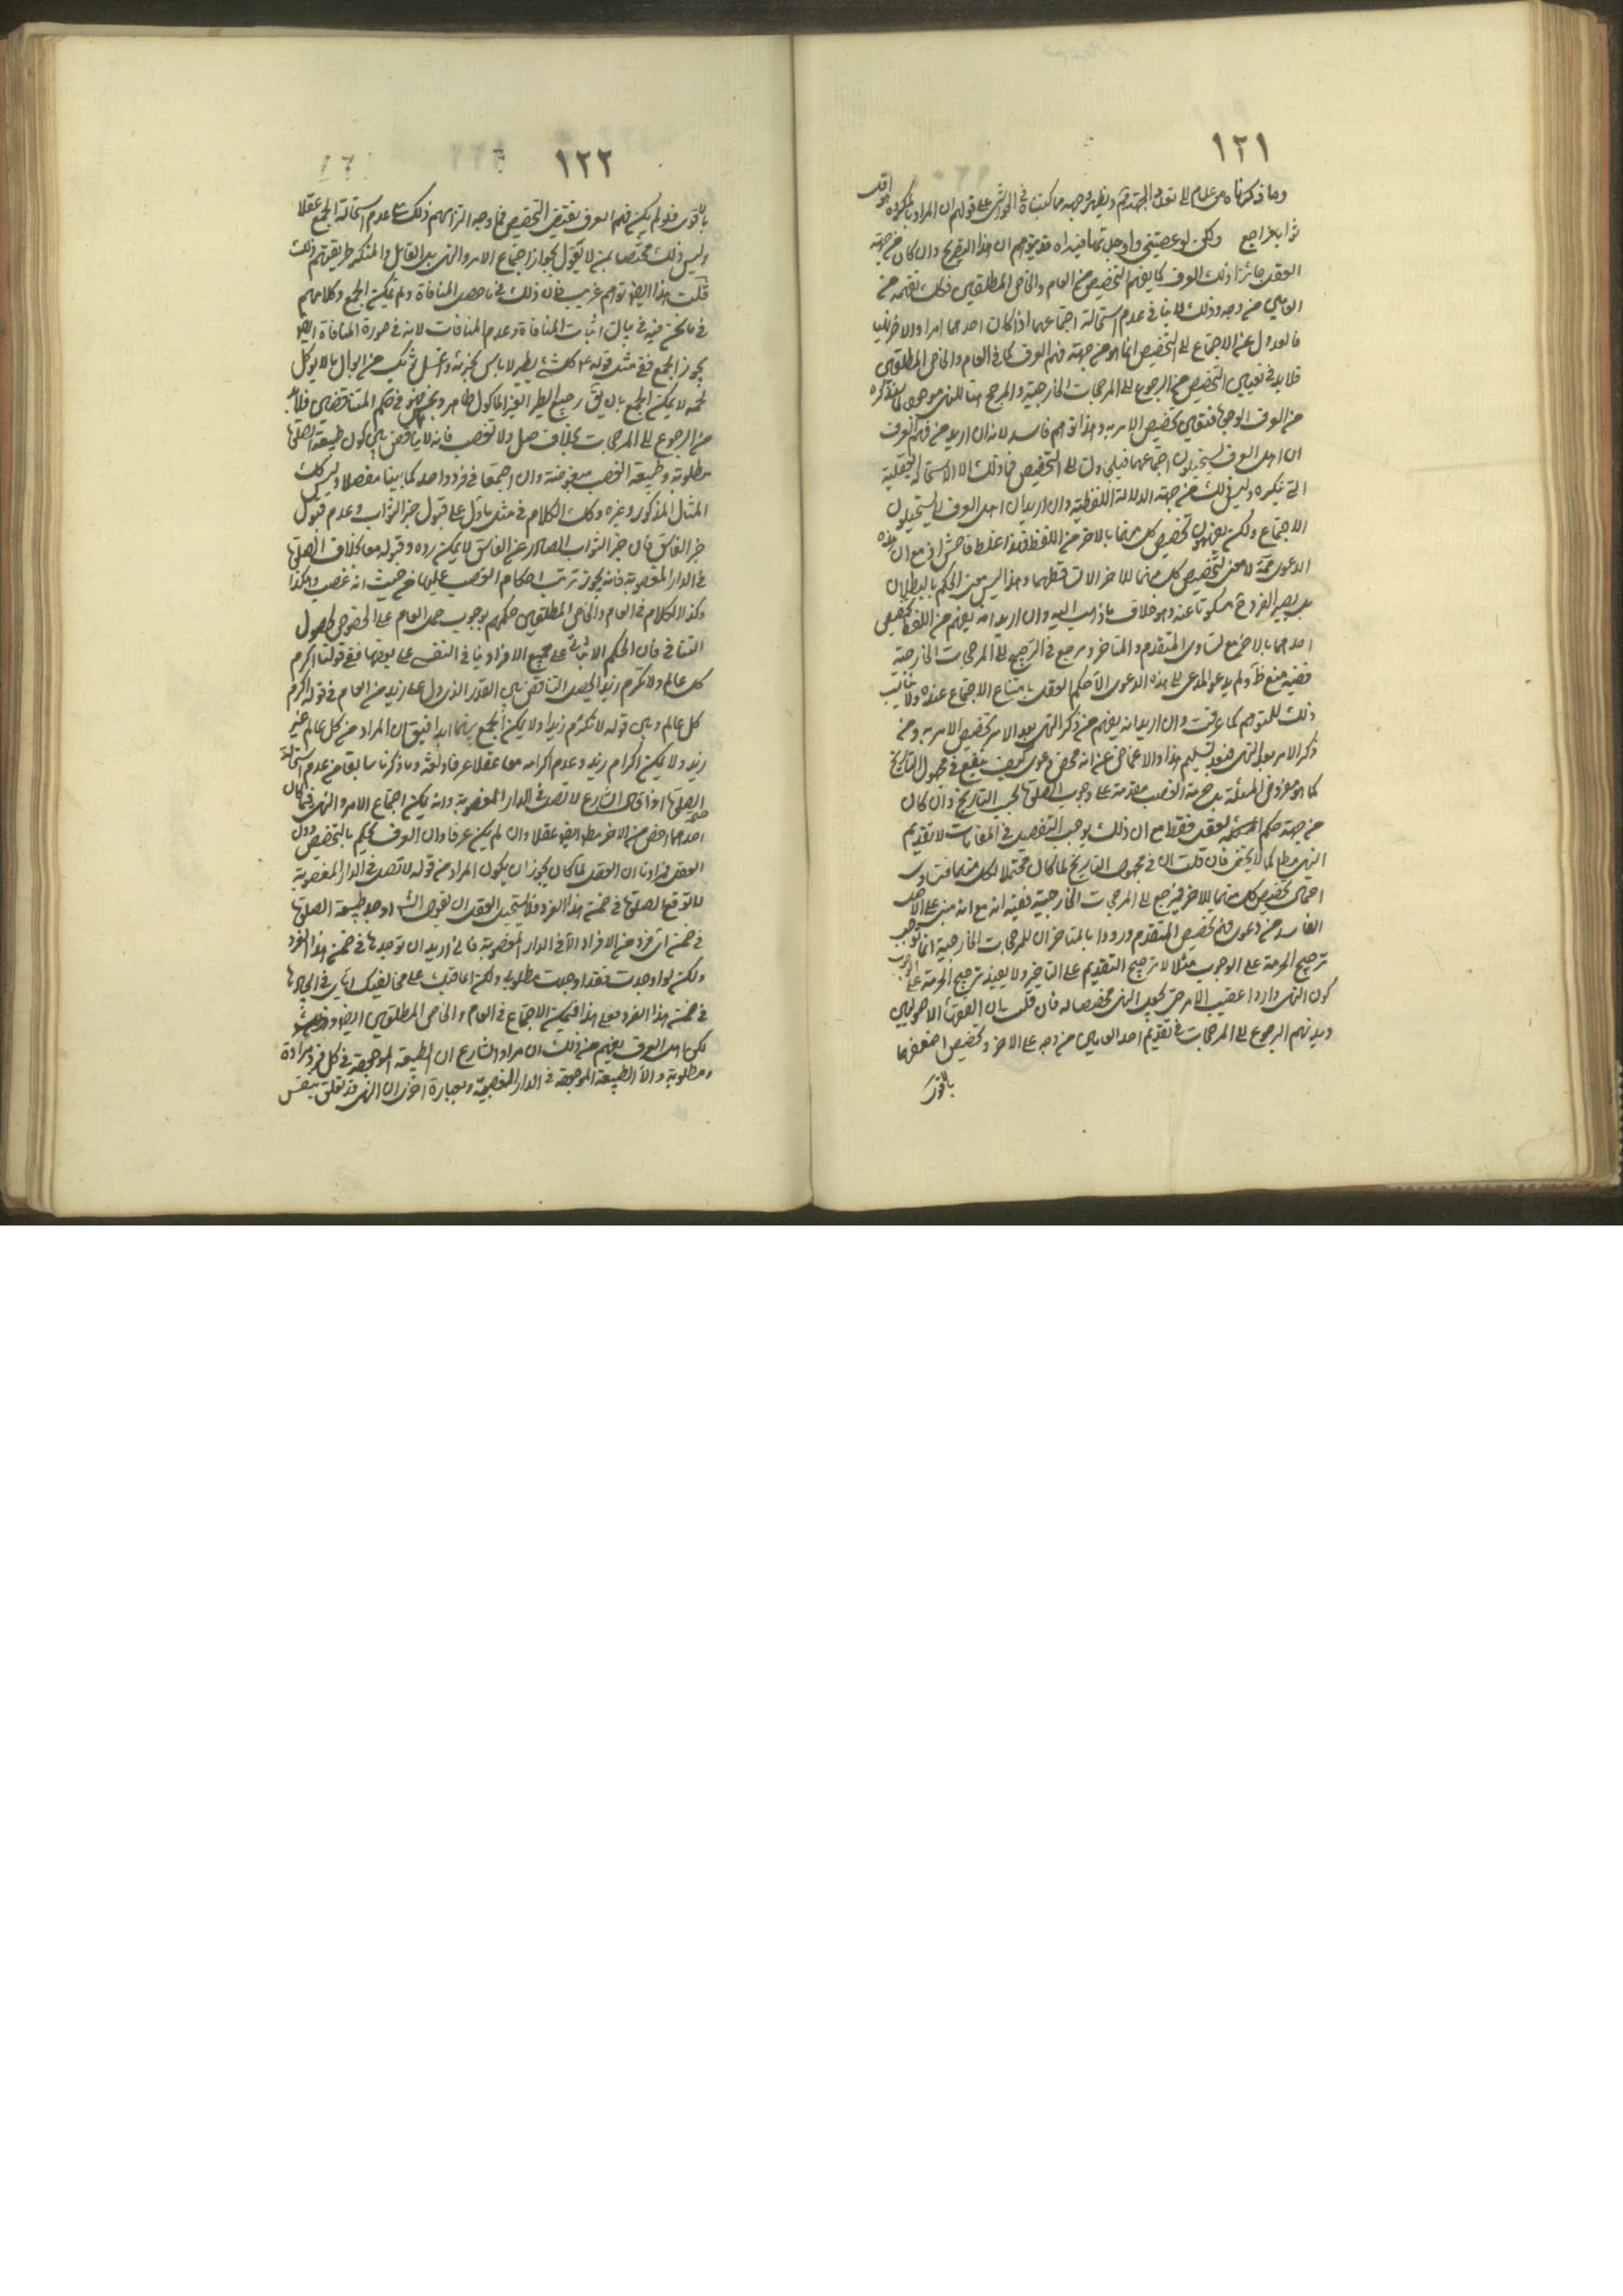 ١٢١
وما ذكرناه
ثوابا فراجع ولكن لو عصيتني واوجدتها فيه قد يتوهم ان هذا التصريح وان كان من جهة
العقل جائزا ذلك العرف كما يفهم التخصيص من العام والخاص المطلقين فكك يفهمه من
العامين من وجه وذلك لا ينافي عدم استحالة اجتماعهما اذا كان احدهما امرا والاخر نهيا
فالعدول عن الاجتماع الى التخصيص انما هو من جهة فهم العرف كما في العام والخاص المطلقين
فلابد في تعيين التخصيص من الرجوع الى المرجحات الخارجية والمرجح
وهذا توهم فاسد لانه ان اريد من فهم العرف
ان اهل العرف يستحيلون اجتماعهما
التي ننكره وليس ذلك من جهة الدلالة اللفظية وان اريد ان اهل العرف لا يستحيلون
الاجتماع ولكن يفهمون تخصيص كل منهما بالاخر من اللفظ فهذا غلط فاحش
الدعوى لا معنى لتخصيص كل منهما للاخر الا تساقطهما وهذا ليس معنى الحكم بالبطلان
بل يصير الفرد ح مسكوتا عنه وهو خلاف ما ذهب اليه وان اريد انه يفهم من اللفظ تخصيص
احدهما بالاخر مع تساوي المتقدم والمتاخر ويرجع في الترجيح الى المرجحات الخارجية
ففيه منع ظاهر ولم يدعو المدعي الى هذه الدعوى الا حكم العقل بامتناع الاجتماع عنده
ذلك للمتوهم كما عرفت وان اريد انه يفهم من ذكر النهي بعد الامر تخصيص الامر به ومن
ذكر الامر بعد النهي فبعد تسليم هذا والاغماض عن انه محض دعوى كيف ينفع في مجهول التاريخ
كما هو مفروض المسئلة بل حرمة الغصب مقدمة على وجوب الصلوة بحسب التاريخ وان كان
من جهة حكم العقل فقط مع ان ذلك يوجب التفصيل في المقامات لا تقديم
النهي مطلقا كما لا يخفى فان قلت ان في مجهول التاريخ لما كان محتملا لكل منهما فتساوى
احتمال تخصيص كل منهما بالاخر فيرجع الى المرجحات الخارجية ففيه انه مع انه مبني على الاصل
الفاسد من دعوى فهم تخصيص المتقدم ورودا بالمتاخر ان المرجحات الخارجية انما توجب
ترجيح الحرمة على الوجوب مثلا لا ترجيح التقديم على التاخير ولا يفيد ترجيح الحرمة على الوجوب
كون النهي واردا عقيب الامر حتى يجعل النهي مخصصا له فان قلت ان الفقهاء الاصوليين
ديدنهم الرجوع الى المرجحات في تقديم احد العامين من وجه على الاخر وتخصيص اضعفهما
بالاقوى
١٢٢
بالاقوى فلو لم يكن فهم العرف يقتضي التخصيص فما وجه التزامهم ذلك مع عدم استحالة الجمع عقلا
وليس ذلك مختصا بمن لا يقول بجواز اجتماع الامر والنهي بل القائل والمنكر طريقتهم ذلك
قلت هذا ايضا توهم غريب فان ذلك في ما حصل المنافاة ولم يمكن الجمع وكلامهم
في ما نحن فيه في بيان اثبات المنافاة وعدم المنافات لانه في صورة المنافاة ايضا
يجوز الجمع ففي مثل قوله ع كل شئ يطير لا باس بخرئه واغسل ثوبك من ابوال ما لا يوكل
لحمه لا يمكن الجمع بان يق رجيع الطير الغير الماكول طاهر ونجس فهو في حكم المتناقضين فلابد
من الرجوع الى المرجحات بخلاف صل ولا تغصب فانه لا تناقض بين كون طبيعة الصلوة
مطلوبة وطبيعة الغصب مبغوضة وان اجتمعا في فرد واحد كما بينا مفصلا وليس كك
المثال المذكور وغيره وكك الكلام في مثل ما دل على قبول خبر الثواب وعدم قبول
خبر الفاسق فان خبر الثواب الصادر عن الفاسق لا يمكن رده وقبوله معا بخلاف الصلوة
في الدار المغصوبة فانه يجوز ترتب احكام الغصب عليها من حيث انه غصب وهكذا
وكذا الكلام في العام والخاص المطلقين حكمهم بوجوب حمل العام على الخصوص لحصول
التنافي فان الحكم الاثباتي على جميع الافراد ينافي النفي على بعضها ففي قولنا اكرم
كل عالم ولا تكرم زيدا يحصل التناقض بين القدر الذي دل على زيد من العام في قوله اكرم
كل عالم وبين قوله لا تكرم زيدا ولا يمكن الجمع بينهما ابدا فيق ان المراد من كل عالم غير
زيد ولا يمكن اكرام زيد وعدم اكرامه معا عقلا عرفا ولغة وما ذكرنا سابقا من عدم استحالة
الصلوة اذا قال الشارع لا تصل في الدار المغصوبة وانه يمكن اجتماع الامر والنهي فيما كان
احدهما اخص من الاخر مطلقا ايضا عقلا وان لم يكن عرفا وان العرف يحكم بالتخصيص دون
العقل فمرادنا ان العقل لما كان يجوز ان يكون المراد من قوله لا تصل في الدار المغصوبة
لا توقع الصلوة في ضمن هذا الفرد فلا يستحيل العقل ان يقول الشارع اوجد طبيعة الصلوة
في ضمن اي فرد من الافراد الا في الدار المغصوبة فاني اريد ان توجدها في ضمن هذا الفرد
ولكن لو اوجدت فقد اوجدت مطلوبي ولكن اعاقبك على مخالفتك اياي في ايجادها
في ضمن هذا الفرد فعلى هذا فيمكن الاجتماع في العام والخاص المطلقين ايضا
لكن اهل العرف يفهم من ذلك ان مراد الشارع ان الطبيعة الموجودة في كل فرد مرادة
ومطلوبة الا الطبيعة الموجودة في الدار المغصوبة وبعبارة اخرى ان النهي قد تعلق بنفس